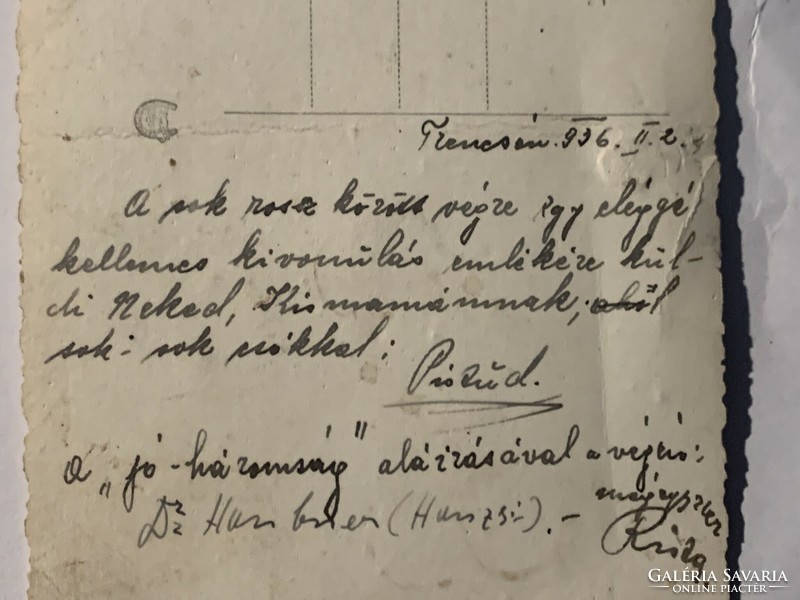 Trencsén. 936. II. 2.
A sok rosz között végre egy eléggé
kellemes kivonulás emlékére kül-
di Neked, Kismamámnak,
sok-sok csókkal:
Pistűd.
a „jó-háromság" aláirásával a végén:
mégegyszer
Dr Han (Hanzsi). -
GALÉRIA SAVARIA
ONLINE PIACTÉR